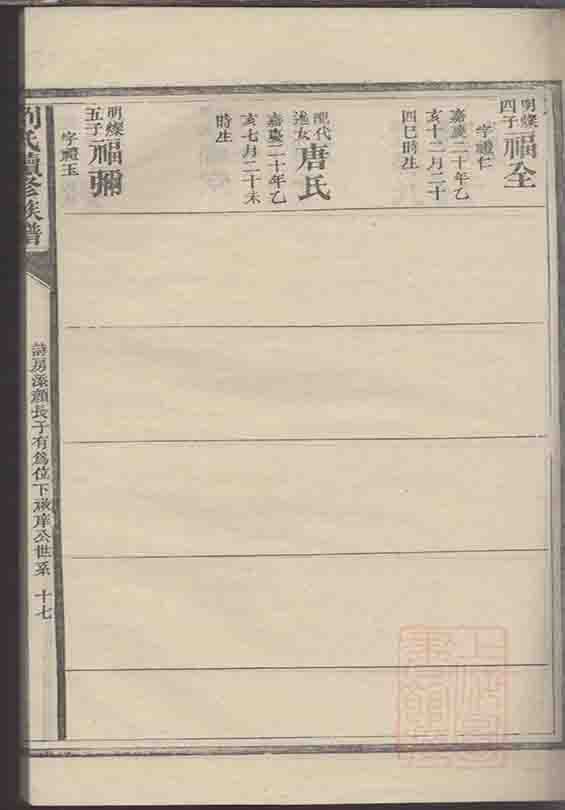 明燦四子福全
字禮仁
嘉慶二十年乙
亥十二月二十
四巳時生
唐氏
嘉慶二十年乙
亥七月二十未
時生
明燦五子福彌
字禮玉
劉氏續修族譜
詩房添顏長子有為位下
公世系 十七